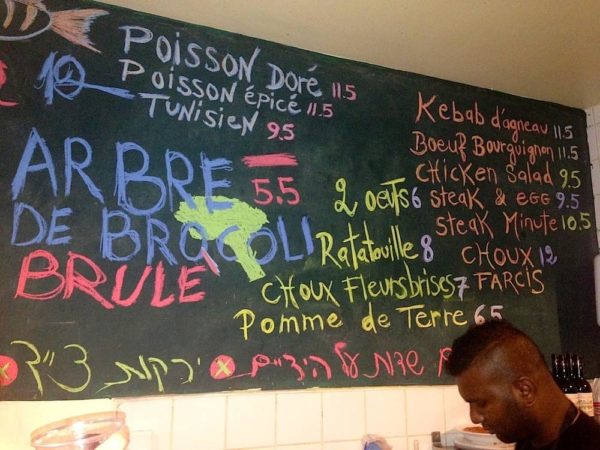 POISSON DORÉ 11.5
POISSON ÉPICÉ 11.5
TUNISIEN 9.5
ARBRE 5.5
DE BROCOLI
BRULÉ
Kebab d'agneau 11.5
Boeuf Bourguignon 11.5
CHicKen Salad 9.5
steaK & EGG 9.5
steaK Minute 10.5
2 oeufs 6
Ratatouille 8
CHOUX 12
FARCIS
CHOUX Fleursbrises 7
Pomme de Terre 6.5
ירקות צ'יק
שדות על הידיים